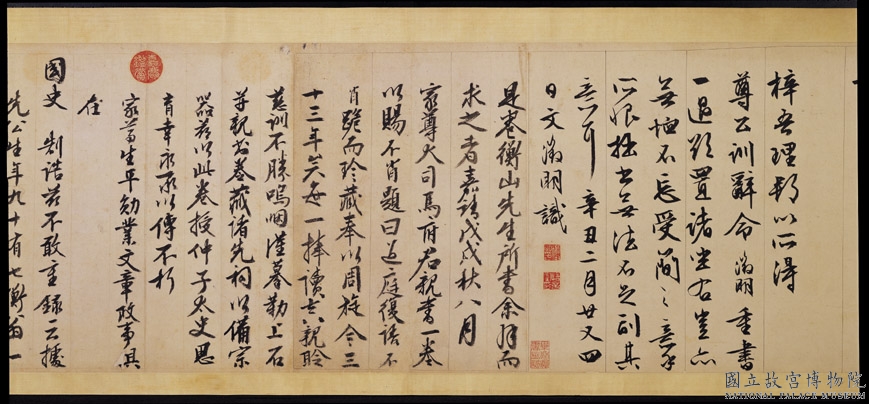 梓吾理邦以所得
尊公訓辭命徵明重書
一過欲置諸坐右豈亦
不忘受簡之意
所恨拙書無法不足副其
意耳 辛丑二月廿又四
日文徵明識
是卷衡山先生所書余拜而
求之者嘉靖戊戌秋八月
家尊大司馬府君親書一卷
以賜不肖題曰過庭復語不
肖跪而珍藏奉以周旋今三
十三年矣每一捧讀親聆
慈訓不勝嗚咽謹摹勒上石
并親書卷藏諸先祠以備宗
器若以此卷授仲子太史思
育幸永永以傳不朽
家尊生平勳業文章政事具
在
國史 制誥若不敢重錄
先公生年九十有七衡翁一
國立故宮博物院
NATIONAL PALACE MUSEUM